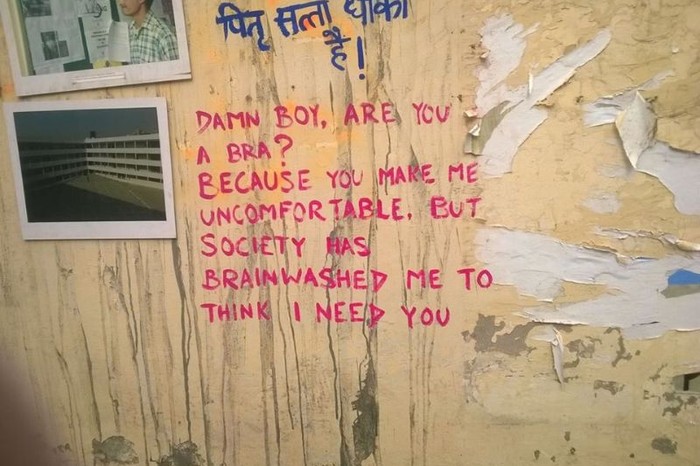 पितृ सत्ता धोका
है!
DAMN BOY, ARE YOU
A BRA?
BECAUSE YOU MAKE ME
UNCOMFORTABLE, BUT
SOCIETY HAS
BRAINWASHED ME TO
THINK I NEED YOU